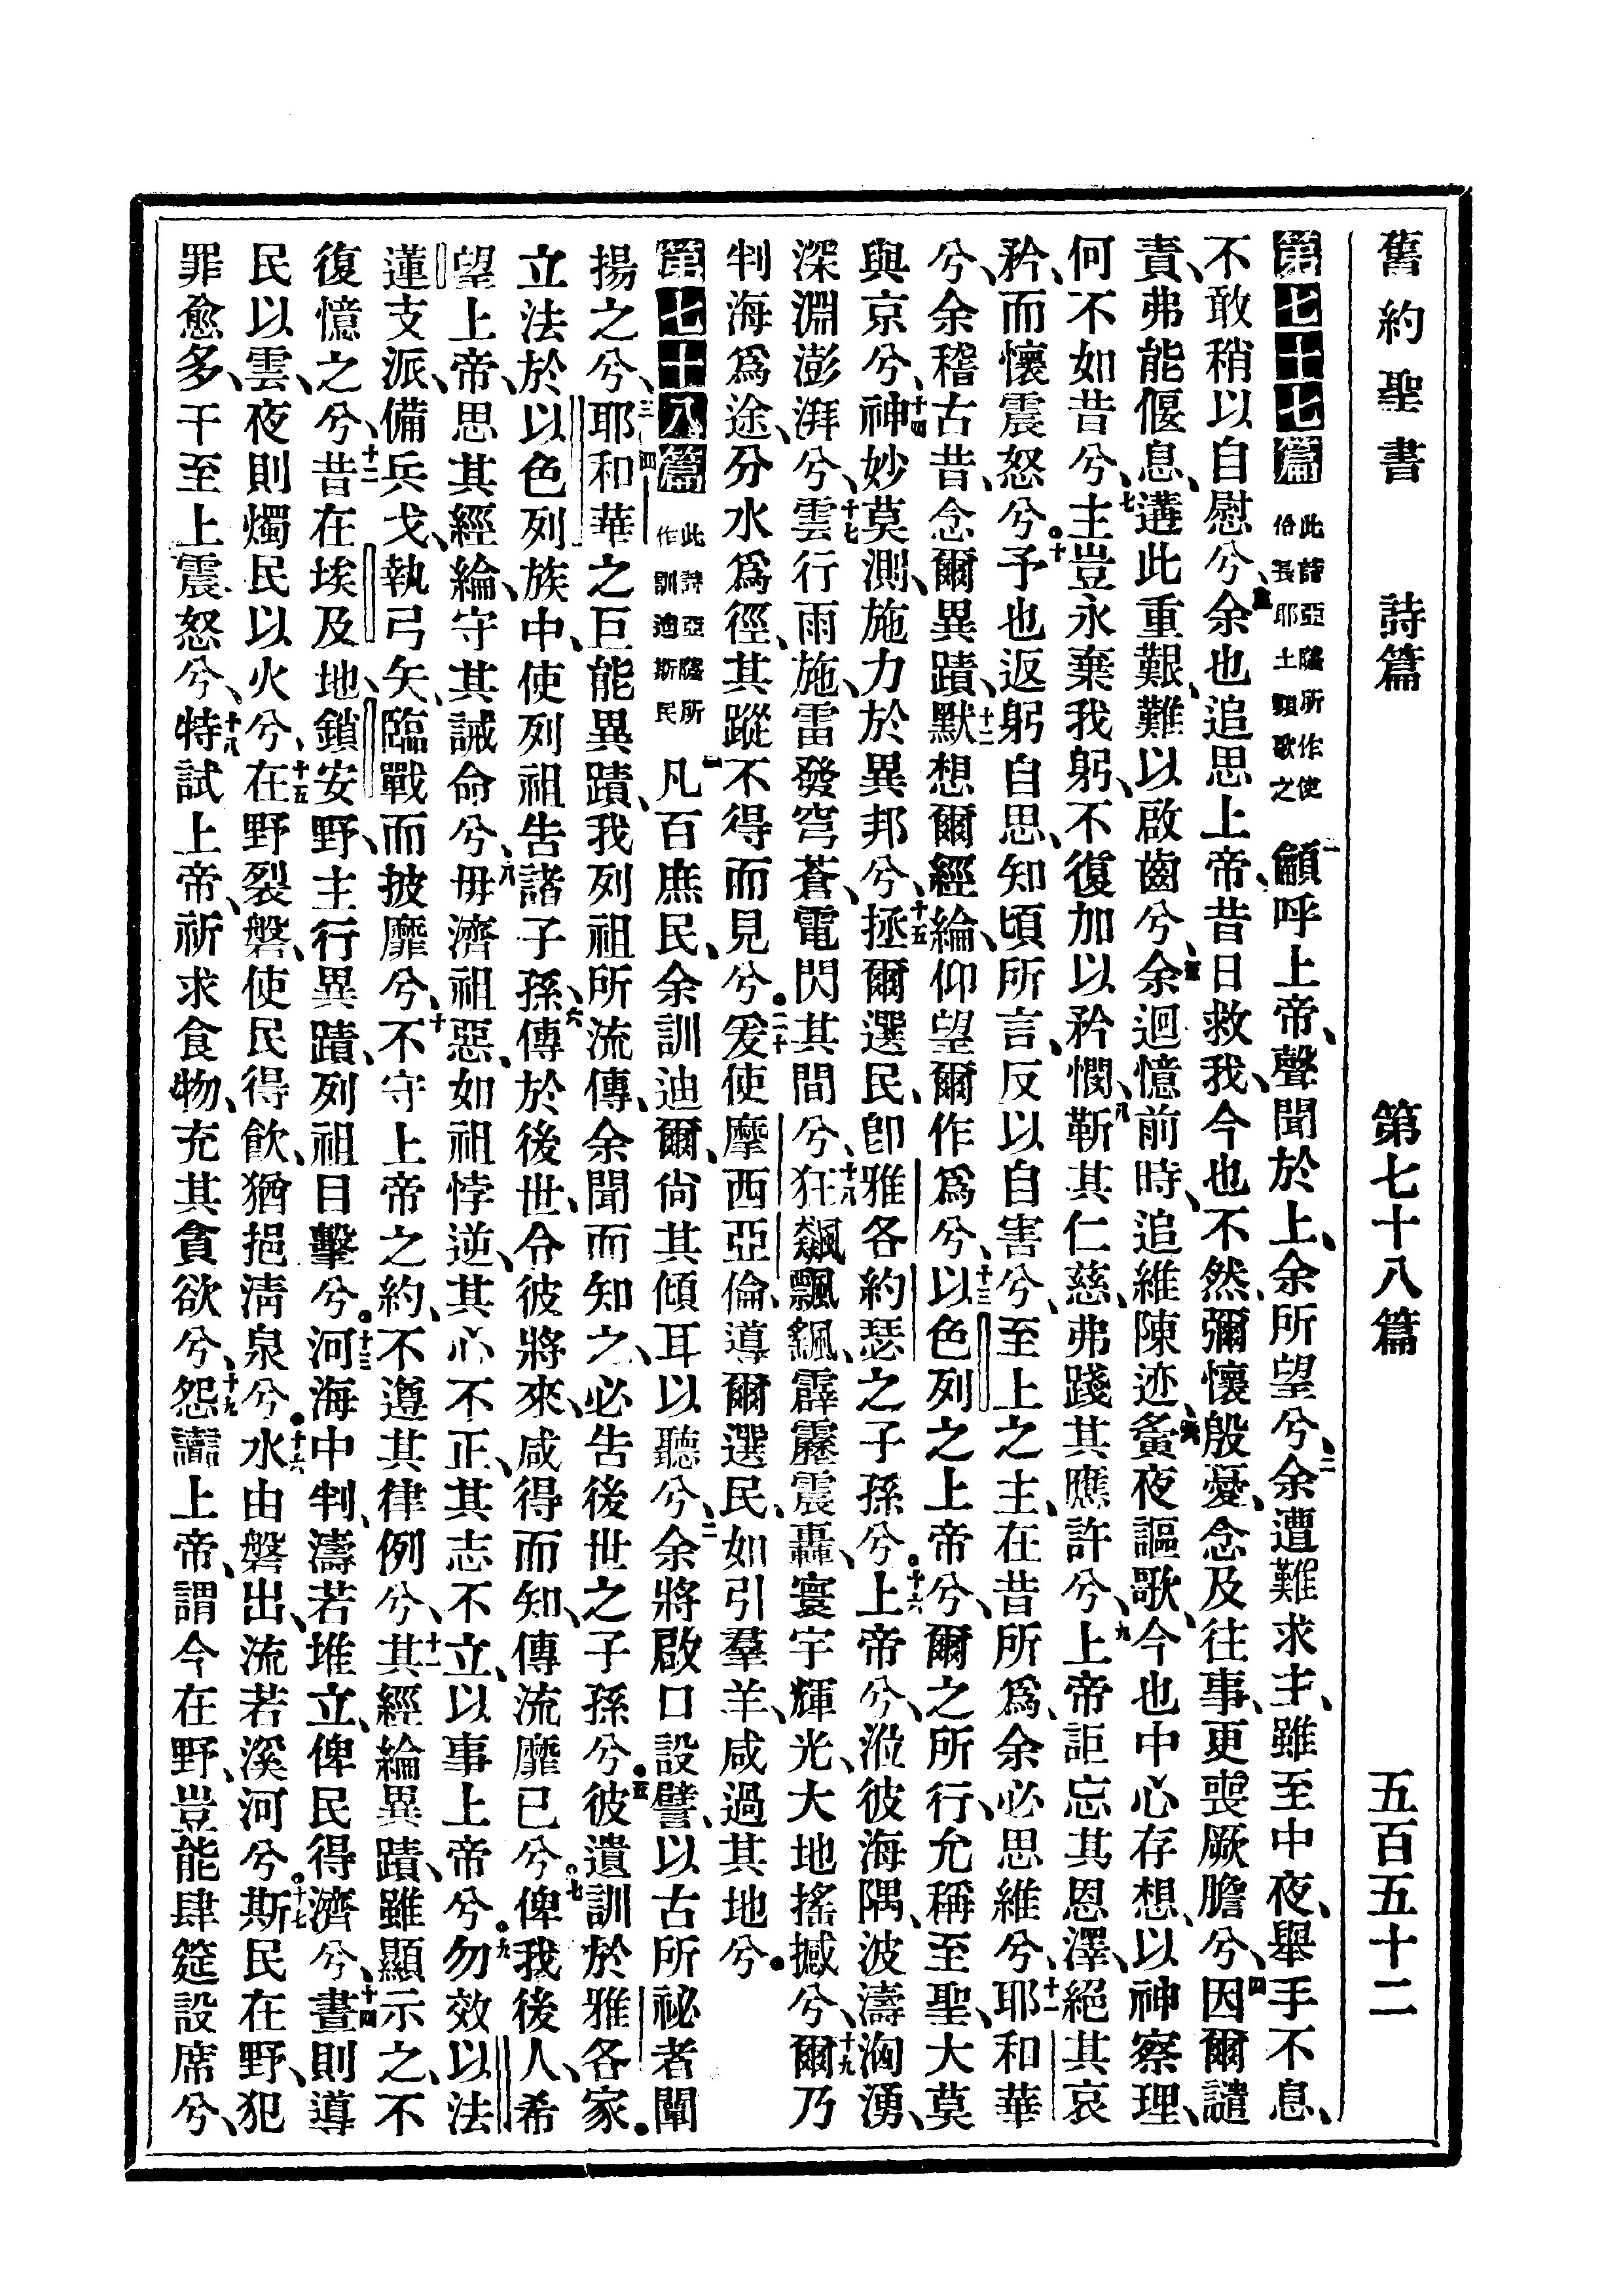 舊約聖書 詩篇 第七十八篇 五百五十二
第七十七篇 此詩亞薩所作使伶長耶土頓歌之 一籲呼上帝、聲聞於上、余所望兮、二余遭難求主、雖至中夜、舉手不息、
不敢稍以自慰兮、三余也追思上帝、昔日救我、今也不然、彌懷殷憂、念及往事、更喪厥膽兮、四因爾譴
責、弗能偃息、遘此重艱、難以啟齒兮、五余迴憶前時、追維陳迹、六夤夜謳歌、今也中心存想、以神察理、
何不如昔兮、七主豈永棄我躬、不復加以矜憫、八靳其仁慈、弗踐其應許兮、九上帝詎忘其恩澤、絕其哀
矜、而懷震怒兮。十予也返躬自思、知頃所言、反以自害兮、至上之主、在昔所爲、余必思維兮、十一耶和華
兮、余稽古昔、念爾異蹟、十二默想爾經綸、仰望爾作爲兮、十三以色列之上帝兮、爾之所行、允稱至聖、大莫
與京兮、十四神妙莫測、施力於異邦兮、十五拯爾選民、卽雅各約瑟之子孫兮。十六上帝兮、涖彼海隅、波濤洶湧、
深淵澎湃兮、十七雲行雨施、雷發穹蒼、電閃其間兮、十八狂飆飄颻、霹靂震轟、寰宇輝光、大地搖撼兮、十九爾乃
判海爲途、分水爲徑、其蹤不得而見兮。二十爰使摩西亞倫、導爾選民、如引羣羊、咸過其地兮。
第七十八篇 此詩亞薩所作訓迪斯民 一凡百庶民、余訓迪爾、尙其傾耳以聽兮、二余將啟口設譬、以古所祕者闡
揚之兮、三四耶和華之巨能異蹟、我列祖所流傳、余聞而知之、必告後世之子孫兮。五彼遺訓於雅各家。
立法於以色列族中、使列祖告諸子孫、六傳於後世、令彼將來、咸得而知、傳流靡已兮。七俾我後人、希
望上帝、思其經綸、守其誡命兮、八毋濟祖惡、如祖悖逆、其心不正、其志不立、以事上帝兮。九勿效以法
蓮支派、備兵戈、執弓矢、臨戰而披靡兮、十不守上帝之約、不遵其律例兮、十一其經綸異蹟、雖顯示之、不
復憶之兮、十二昔在埃及地、鎖安野、主行異蹟、列祖目擊兮。十三河海中判、濤若堆立、俾民得濟兮、十四晝則導
民以雲、夜則燭民以火兮、十五在野裂磐、使民得飮、猶挹淸泉兮。十六水由磐出、流若溪河兮。十七斯民在野、犯
罪愈多、干至上震怒兮、十八特試上帝、祈求食物、充其貪欲兮、十九怨讟上帝、謂今在野、豈能肆筵設席兮、